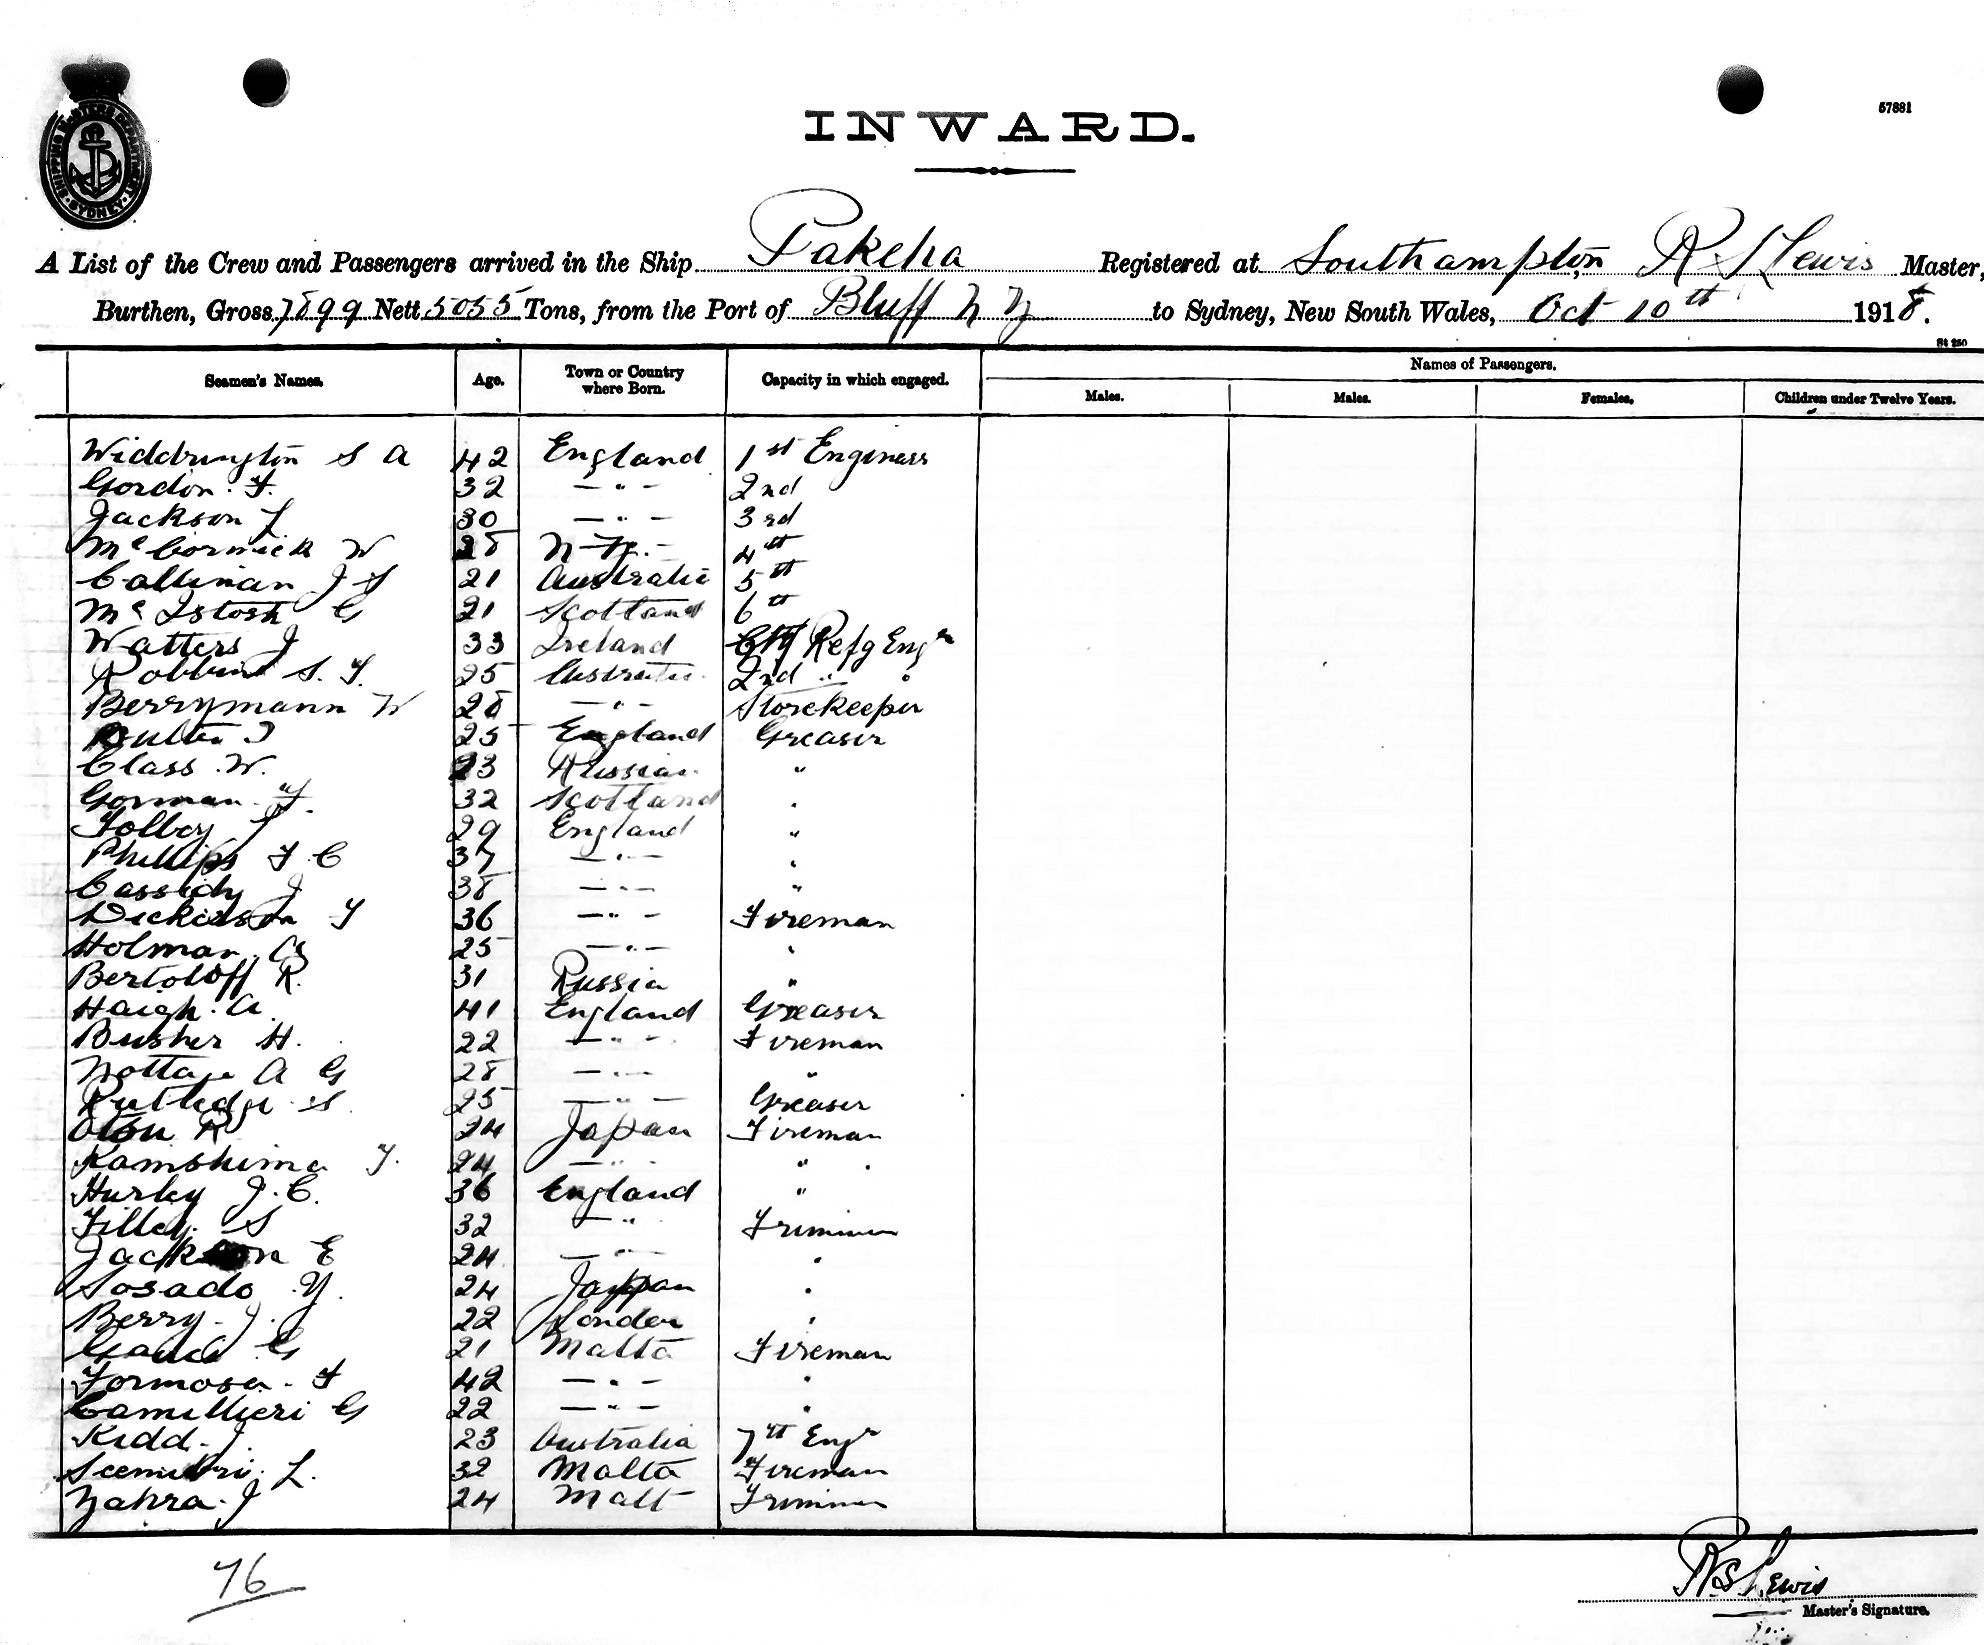 57881
SHIPPING MASTERS DEPARTMENT SYDNEY
INWARD.
A List of the Crew and Passengers arrived in the Ship Pakeha Registered at Southampton R S Lewis Master,
Burthen, Gross 7899 Nett 5055 Tons, from the Port of Bluff N Z to Sydney, New South Wales, Oct 10th 1918.
St 250
Seamen's Names. Age. Town or Country where Born. Capacity in which engaged. Names of Passengers.
Males. Males. Females. Children under Twelve Years.
Widdrington S A 42 England 1st Engineer
Gordon F. 32 — " — 2nd
Jackson J 30 — " — 3rd
McCormick W 28 N Z. 4th
Callinan J S 21 Australia 5th
McIstosh G 21 Scotland 6th
Watters J 33 Ireland Refg Engr
Robbins S. F. 25 Australia 2nd " "
Berrymann W 28 — " — Storekeeper
25 England Greaser
Class W. 23 Russian "
Gorman F. 32 Scotland "
Tolley J 29 England "
Phillips F C 37 — " — "
Cassidy J 38 — " — "
Dickinson F 36 — " — Fireman
Holman G 25 — " — "
Bertoloff R. 31 Russia "
Haigh A. 41 England Greaser
Busher H. 22 — " — Fireman
Nottage A G 28 — " — "
Rutledge S 25 — " — Greaser
R 24 Japan Fireman
Kamshima Y. 24 — " — "
Hurley J. C. 36 England "
Tilley S 32 — " Trimmer
Jackson E 24 — " — "
Sosado Y. 24 Japan "
Berry J. 22 London "
Gauci G 21 Malta Fireman
Formosa F 42 — " — "
Camilleri G 22 — " — "
Kidd J. 23 Australia 7th Engr
L. 32 Malta Fireman
Zahra J 24 Malt Trimmer
76
R S Lewis
Master's Signature.